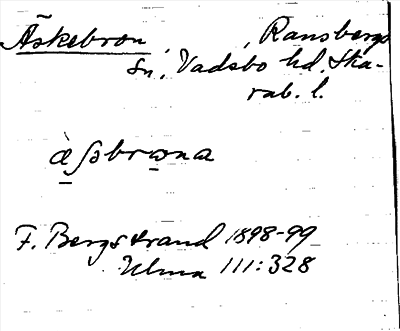 Äskebron, , Ransbergs
sn, Vadsbo hd. Ska-
rab. l.
F. Bergstrand 1898-99
Ulma 111:328